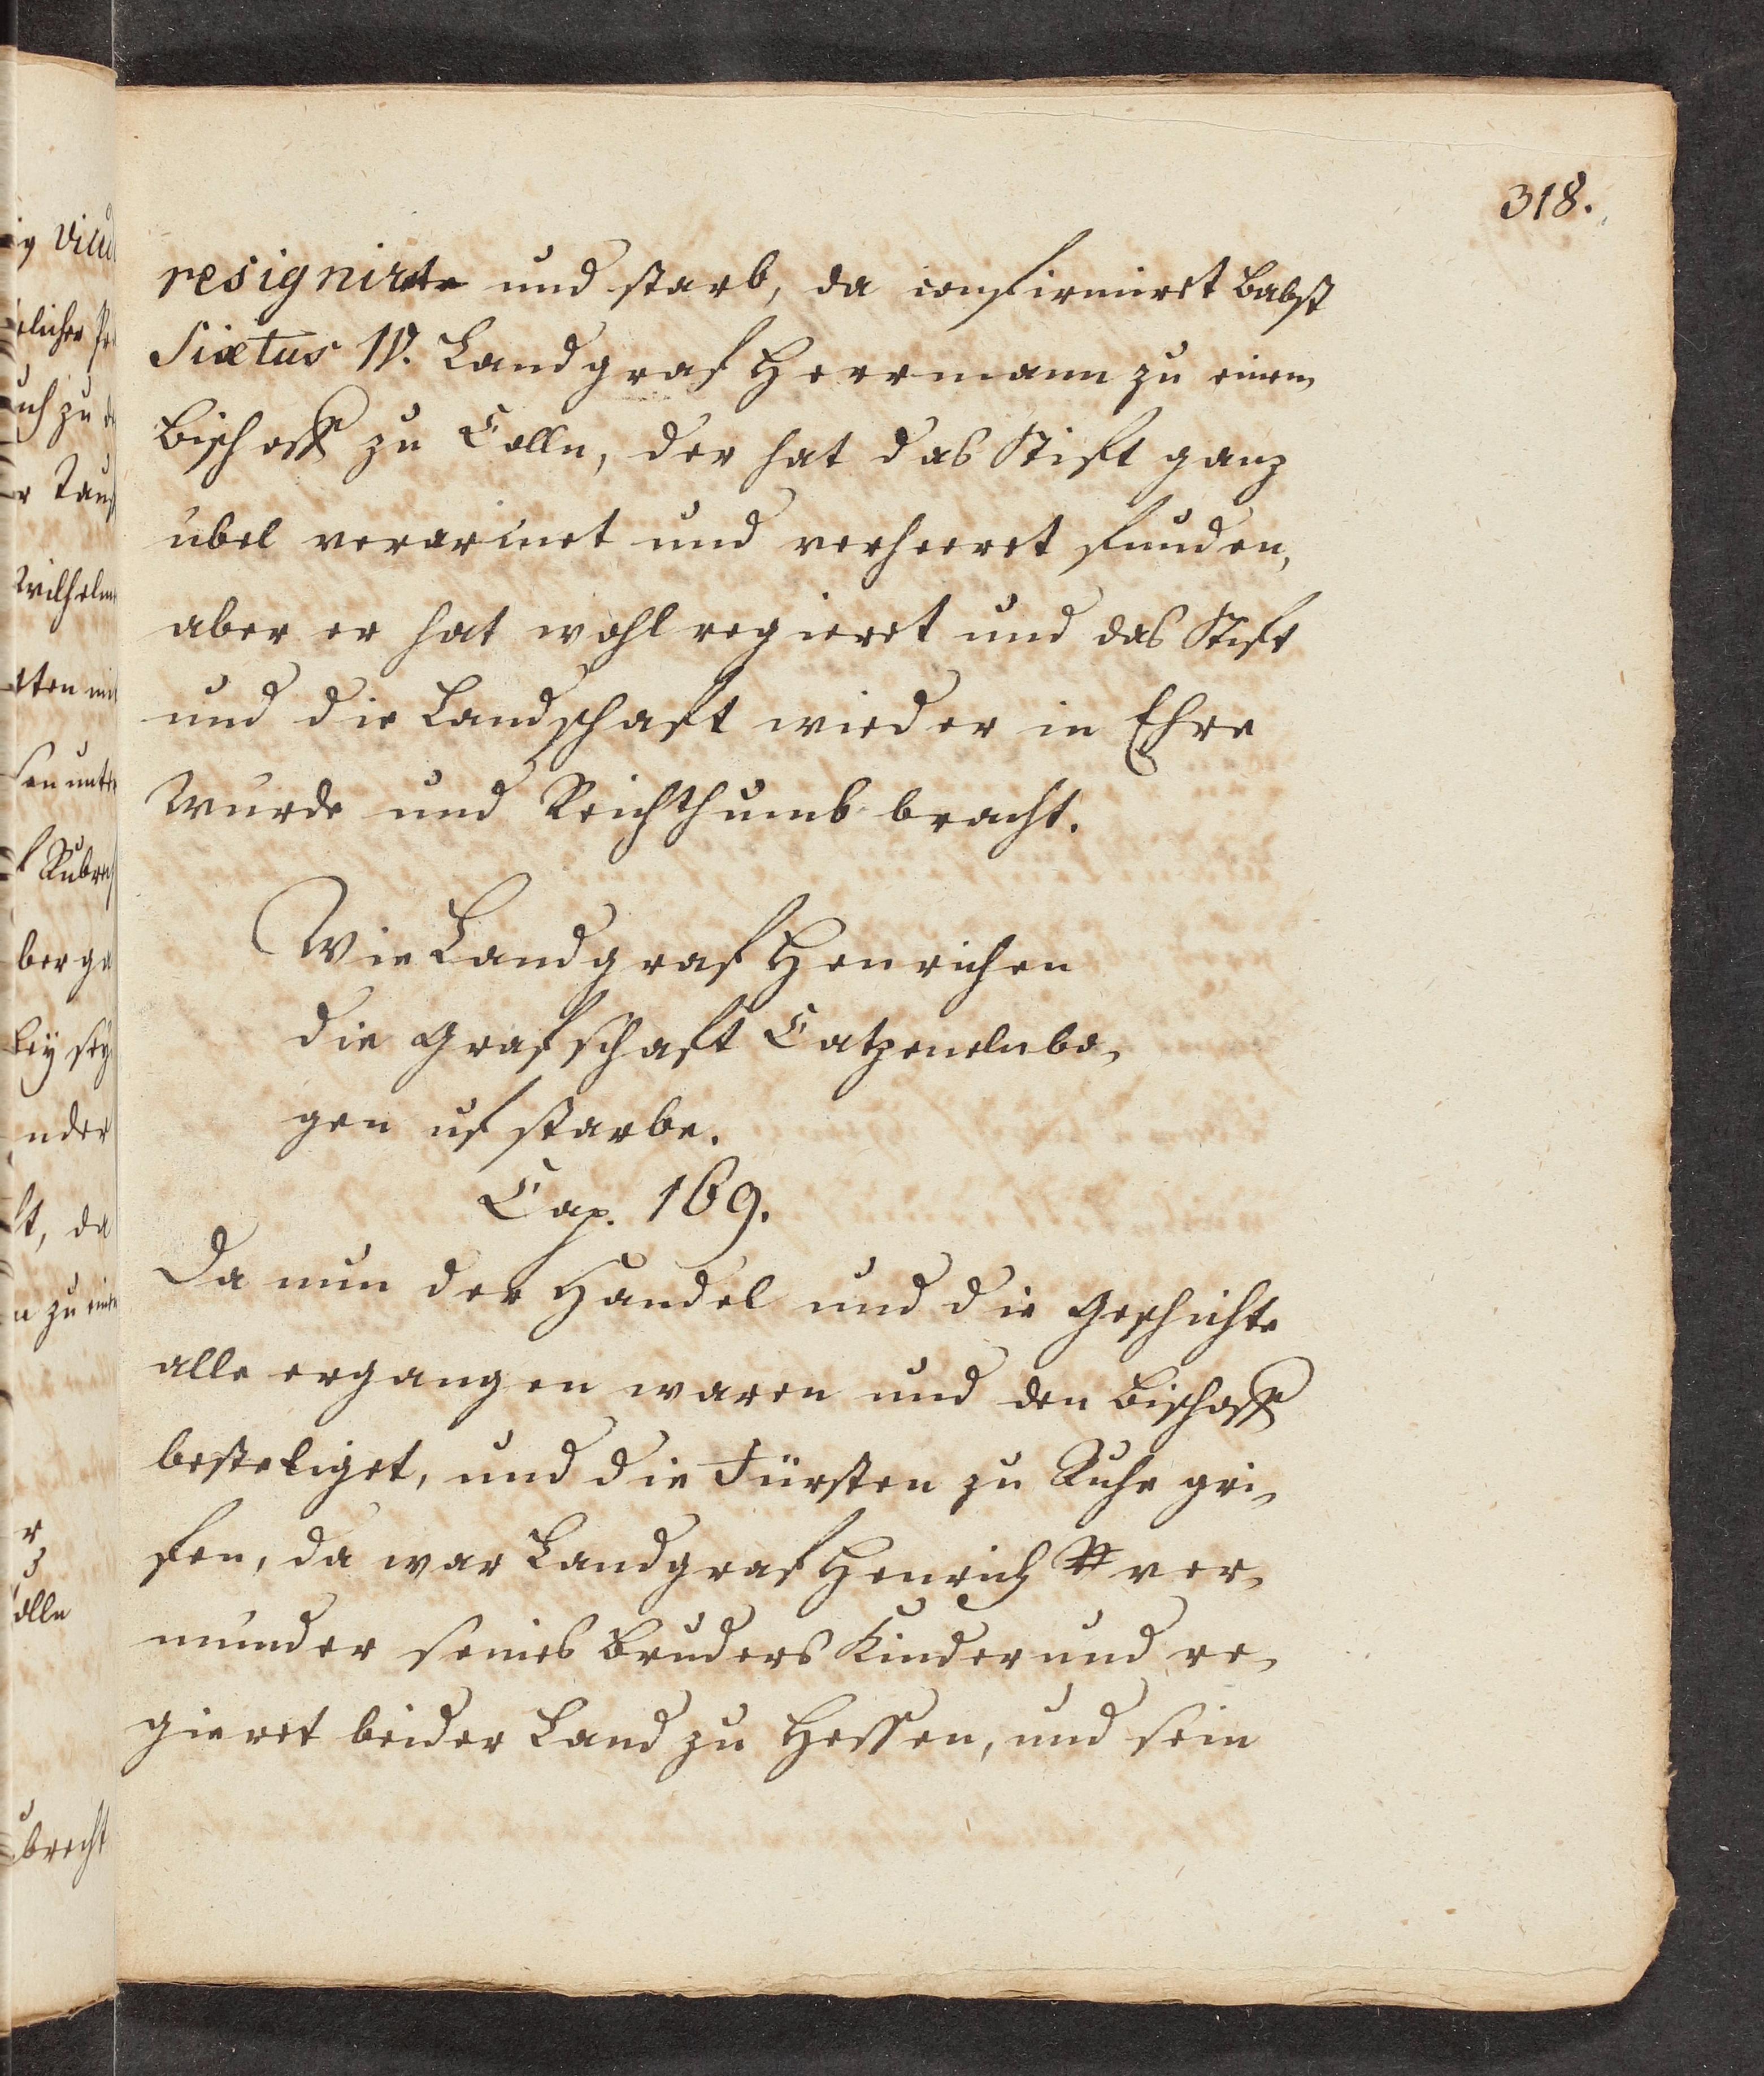 318.
resignirte und starb, da confirmiret Babst
Sixtus IV. Landgraf Herrmann zu einem
Bischoff zu Colln, der hat das Stift ganz
ubel verarmet und verheeret funden,
aber er hat wohl regieret und das Stift
und die Landschaft wieder in Ehre
Wurde und Reichthumb bracht.
Wie Landgraf Henrichen
die Grafschaft Catzenelnbo-
gen uf starbe.
Cap. 169.
Da nun der Handel und die Geschichte
alle ergangen waren und den Bischoff
bestetiget, und die Fürsten zu Ruhe gri-
fen, da war Landgraf Henrich ver-
munder seines Bruders Kinder und re-
gieret beider Land zu Hessen, und sein